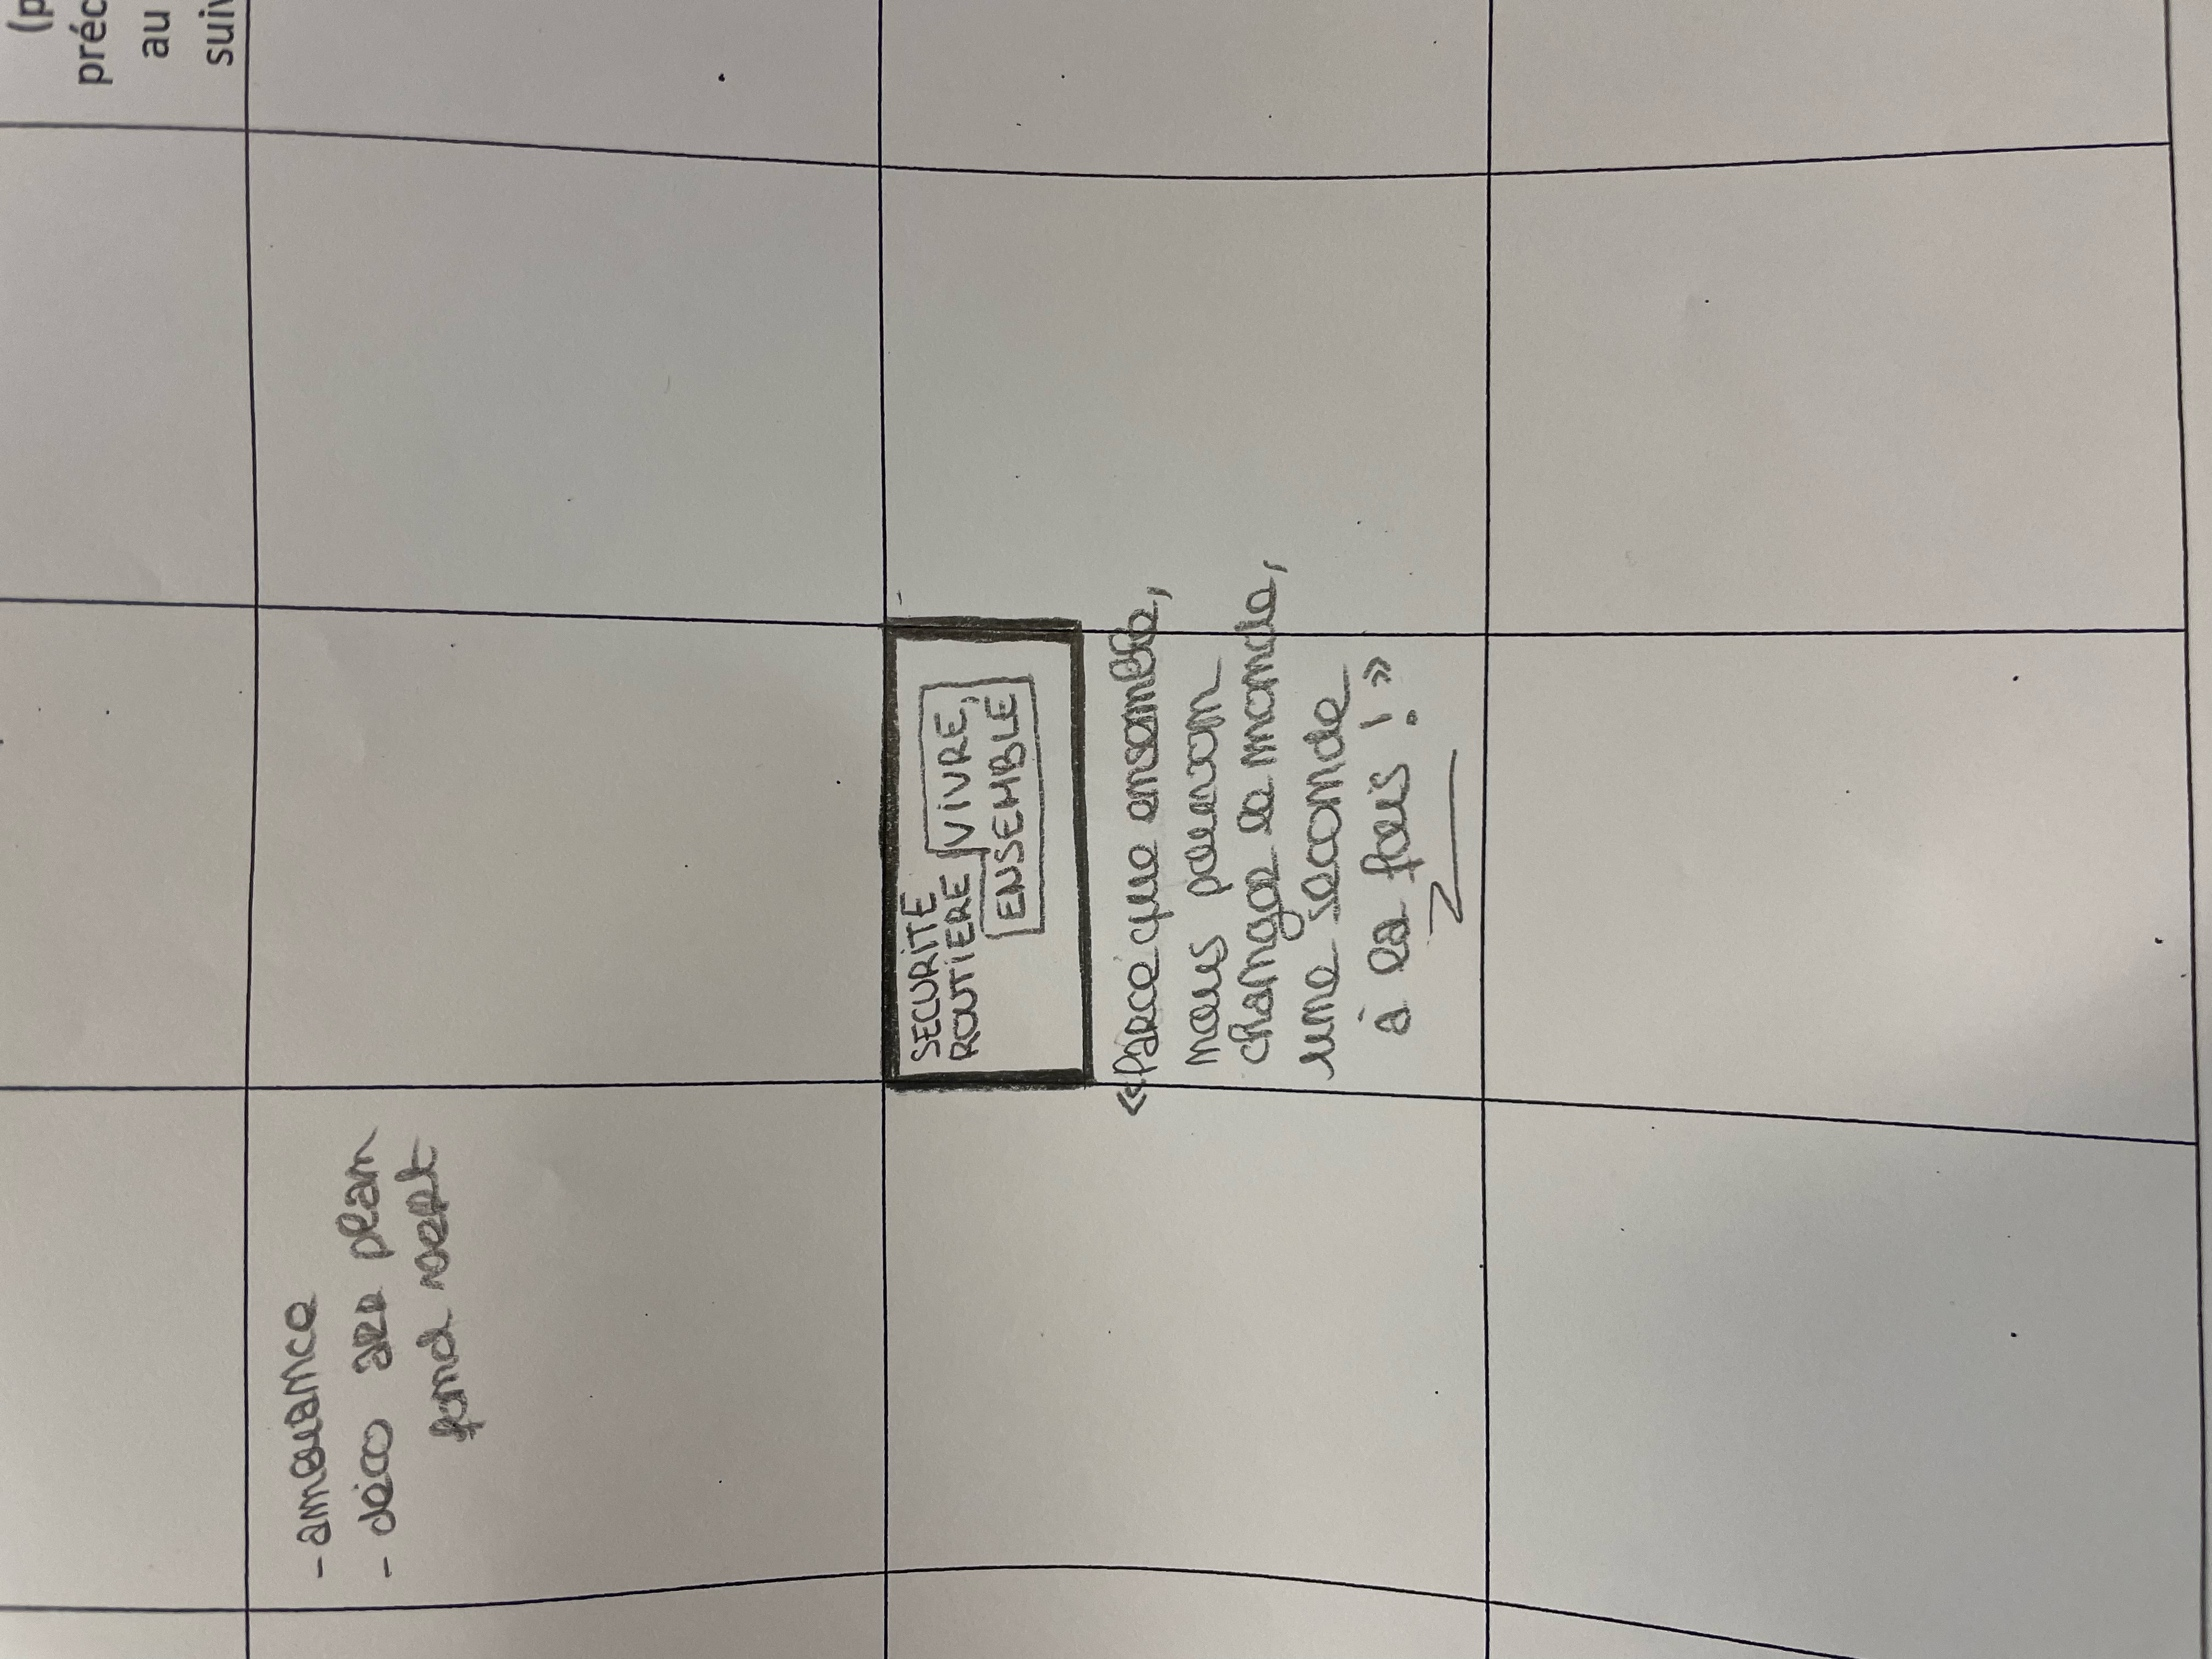 (p
préc
au
suiv
- ambulance
- déco arr plan
fond vert
SECURITE
ROUTIERE VIVRE,
ENSEMBLE
«Parce que ensemble,
nous pouvon
change le monde,
une seconde
à la fois ! »